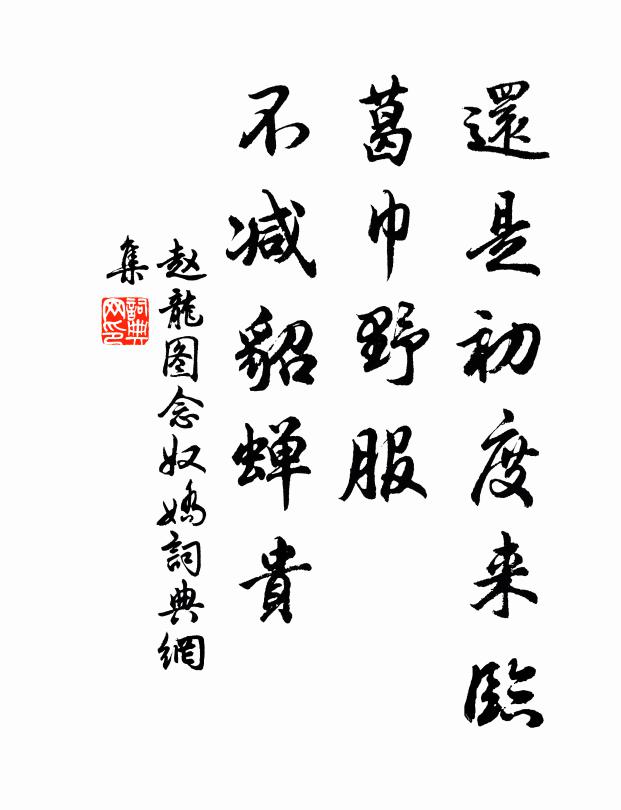 還是初度来臨
葛巾野服
不減貂蟬貴
赵龍图念奴嬌詞典網
集
詞典
网印